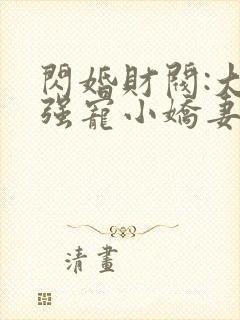 閃婚財閥:大
强寵小嬌妻
清畫